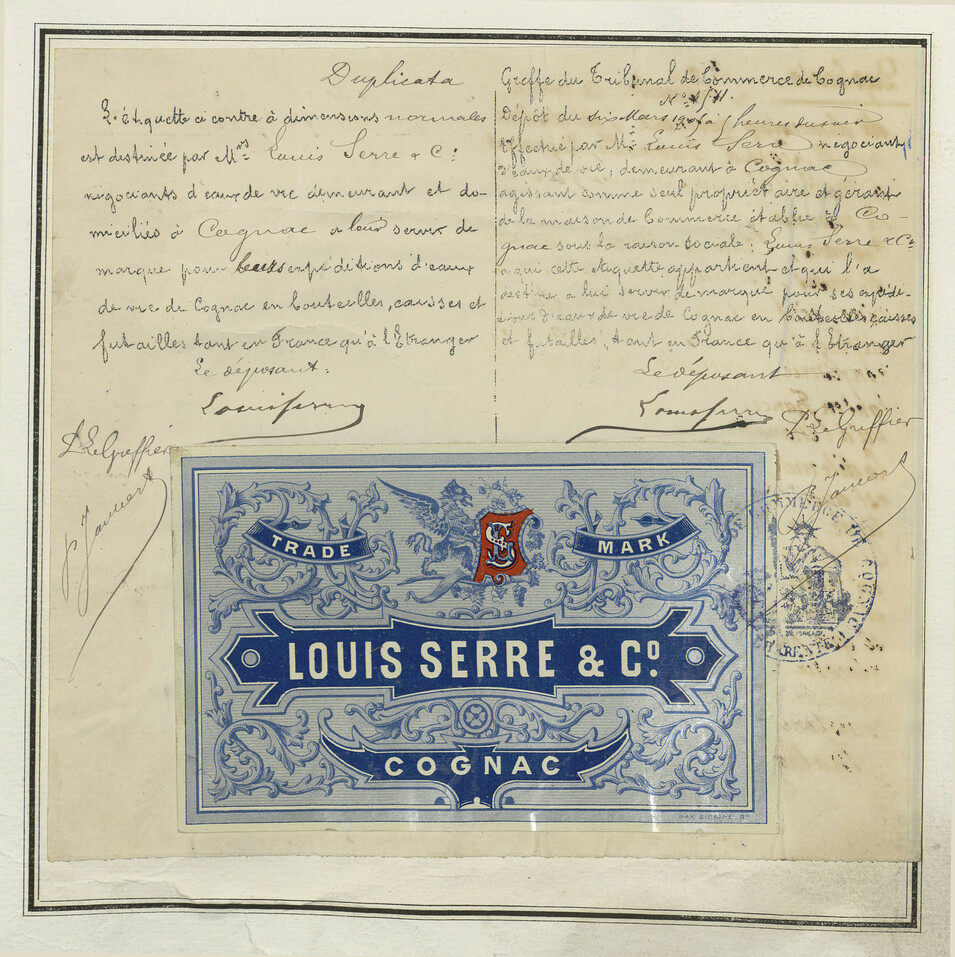 Duplicata
L'étiquette ci contre à dimensions normales
est destinée par Mrs Louis Serre & Cie
négociants d'eaux de vie demeurant et do-
miciliés à Cognac a leur servir de
marque pour leurs expéditions d'eaux
de vie de Cognac en bouteilles, caisses et
futailles tant en France qu'à l'Etranger
Le déposant:
Louis Serre
P. Le Greffier
Greffe du Tribunal de Commerce de Cognac
Dépôt du six Mars heures du soir
Effectué par Mr Louis Serre négociant
d'eaux de vie, demeurant à Cognac
agissant comme seul propriétaire et gérant
de la maison de Commerce établie à Co-
gnac sous la raison sociale: Louis Serre & Cie
a qui cette étiquette appartient et qui l'a
destine a lui servir de marque pour ses expédi-
tions d'eaux de vie de Cognac en bouteilles, caisses
et futailles, tant en France qu'à l'Etranger
Le déposant
Louis Serre
P. Le Greffier
TRADE MARK
LOUIS SERRE & Co.
COGNAC